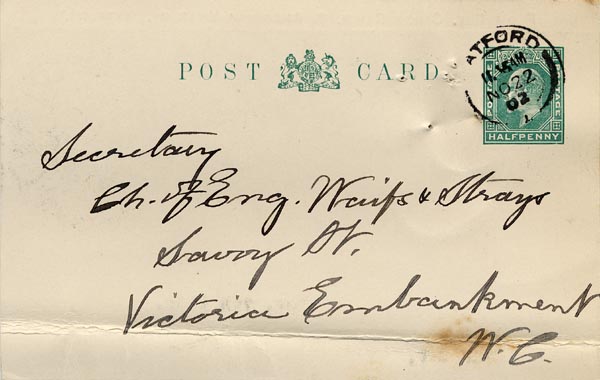 POST CARD
ATFORD
11.45AM
NO 22
02
POSTAGE
HALFPENNY
Secretary
Ch. of Eng. Waifs & Strays
Savoy St.
Victoria Embankment
W.C.